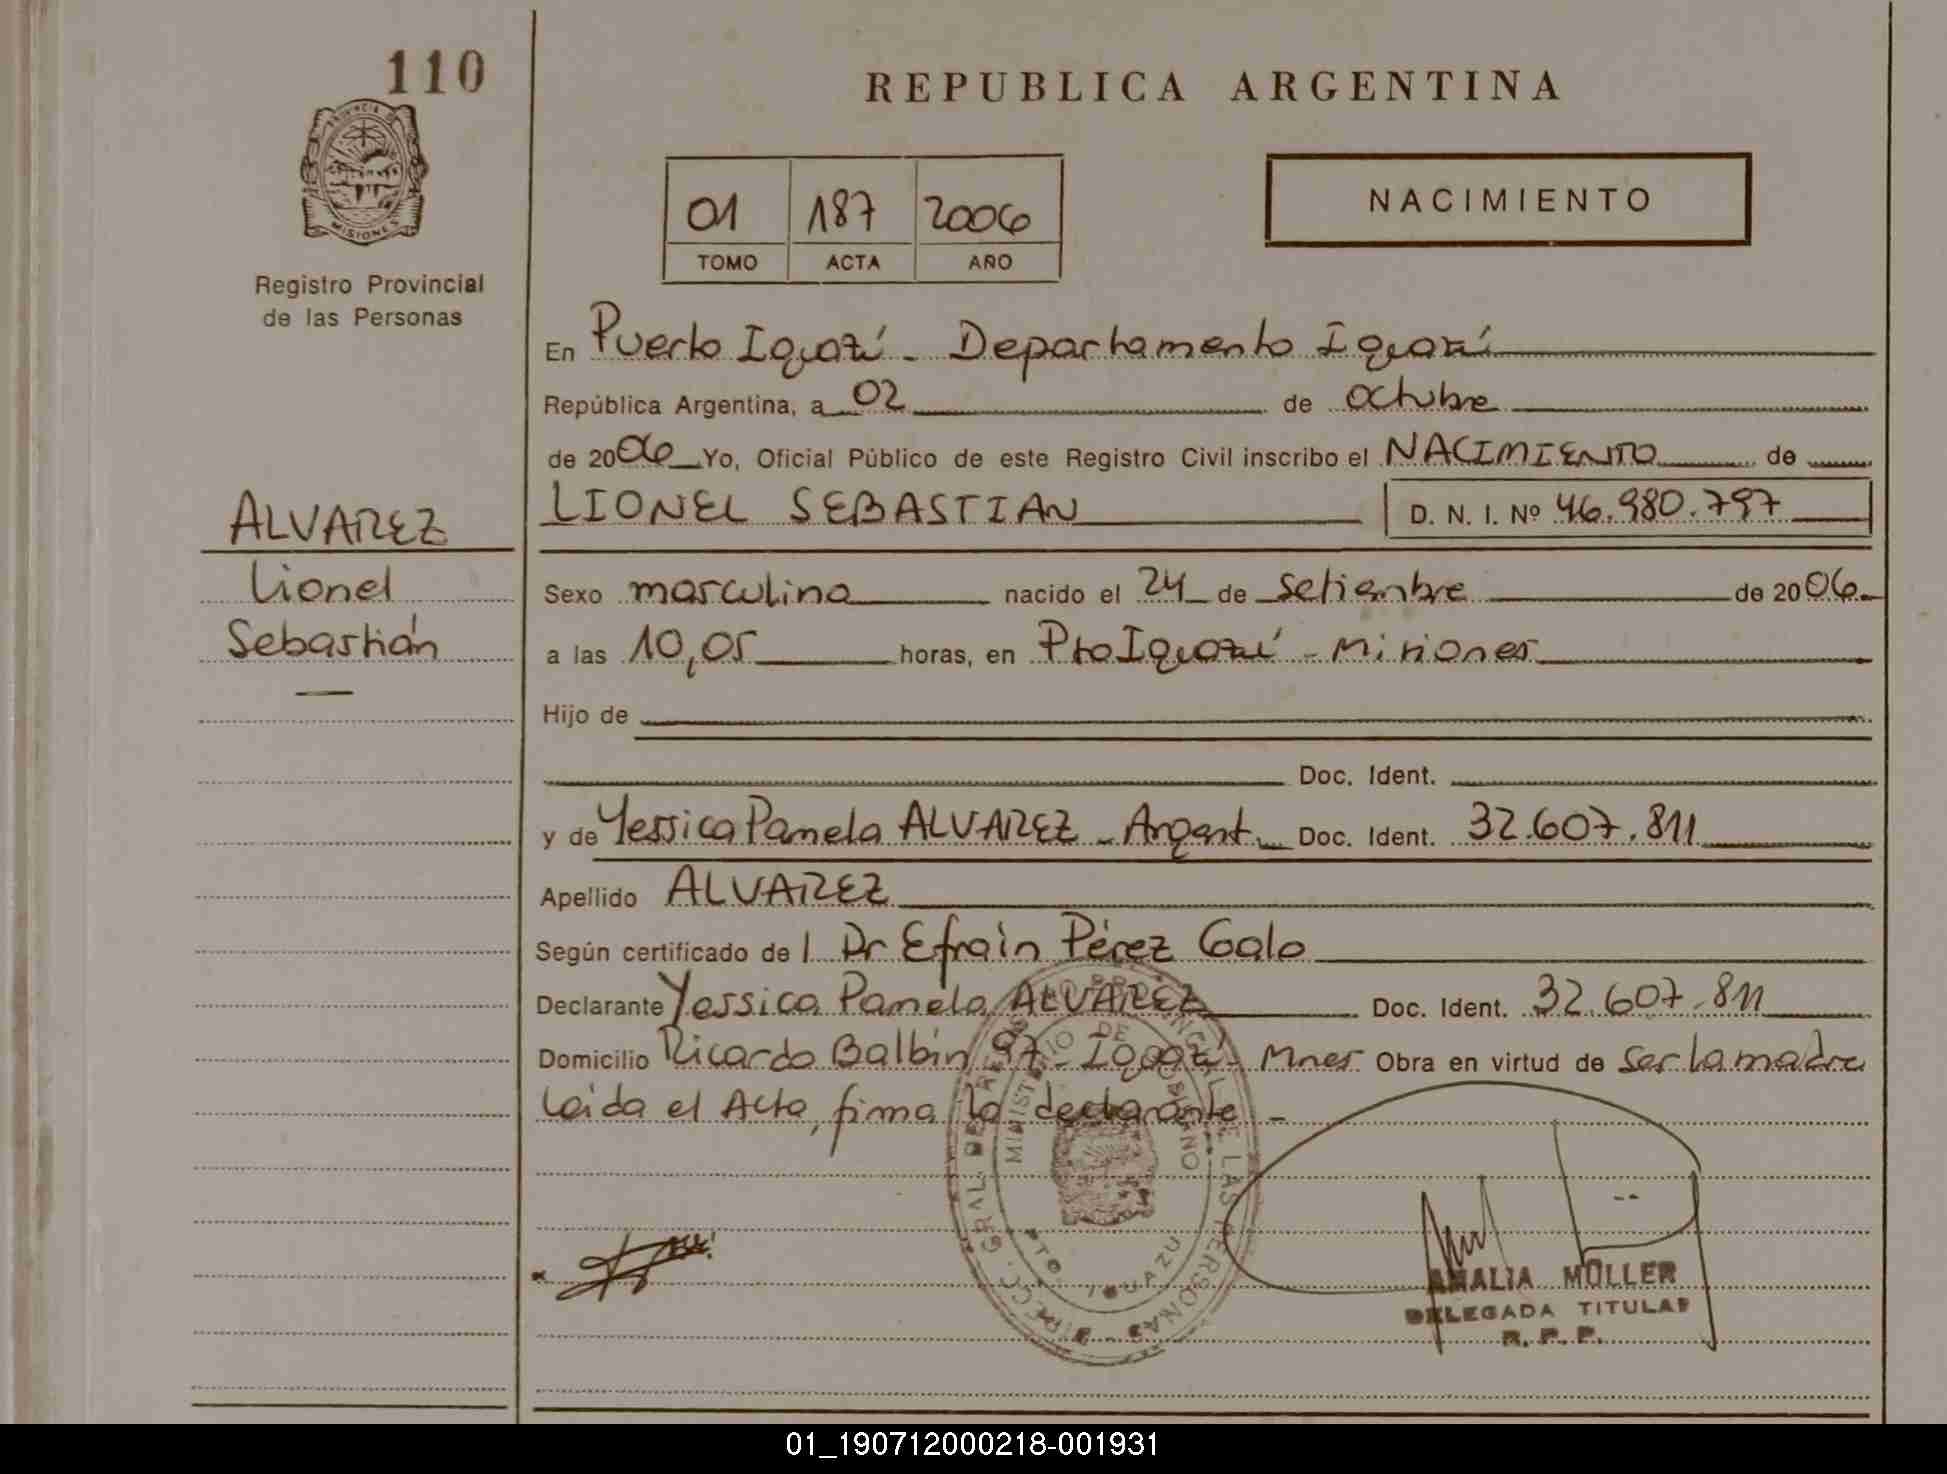 110
PROVINCIA DE
MISIONES
Registro Provincial
de las Personas
ALVAREZ
Lionel
Sebastián
REPUBLICA ARGENTINA
01 187 2006
TOMO ACTA AÑO
NACIMIENTO
En Puerto Iguazú - Departamento Iguazú
República Argentina, a 02 de octubre
de 2006 Yo, Oficial Público de este Registro Civil inscribo el NACIMIENTO de
LIONEL SEBASTIAN D. N. I. Nº 46.980.797
Sexo masculino nacido el 24 de setiembre de 2006
a las 10,05 horas, en Pto Iguazú - Misiones
Hijo de
Doc. Ident.
y de Yessica Pamela ALVAREZ - Argent. Doc. Ident. 32.607.811
Apellido ALVAREZ
Según certificado de l Dr Efraín Pérez Galo
Declarante Yessica Pamela ALVAREZ Doc. Ident. 32.607.811
Domicilio Ricardo Balbín 97 - Iguazú - Mnes Obra en virtud de ser la madre
Leída el Acta, firma la declarante -
DIRECC. GRAL. DE REGISTRO PROVINCIAL DE LAS PERSONAS
MINISTERIO DE GOBIERNO
PTO. IGUAZU
AMALIA MULLER
DELEGADA TITULAR
R. P. P.
01_190712000218-001931